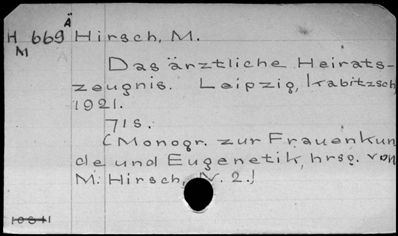 Ä
H 669 Hirsch, M.
M
Das ärztliche Heirats-
zeugnis. Leipzig, Kabitzsch
1921.
71 S.
(Monogr. zur Frauenkun
de und Eugenetik, hrsg. von
M. Hirsch, N. 2.)